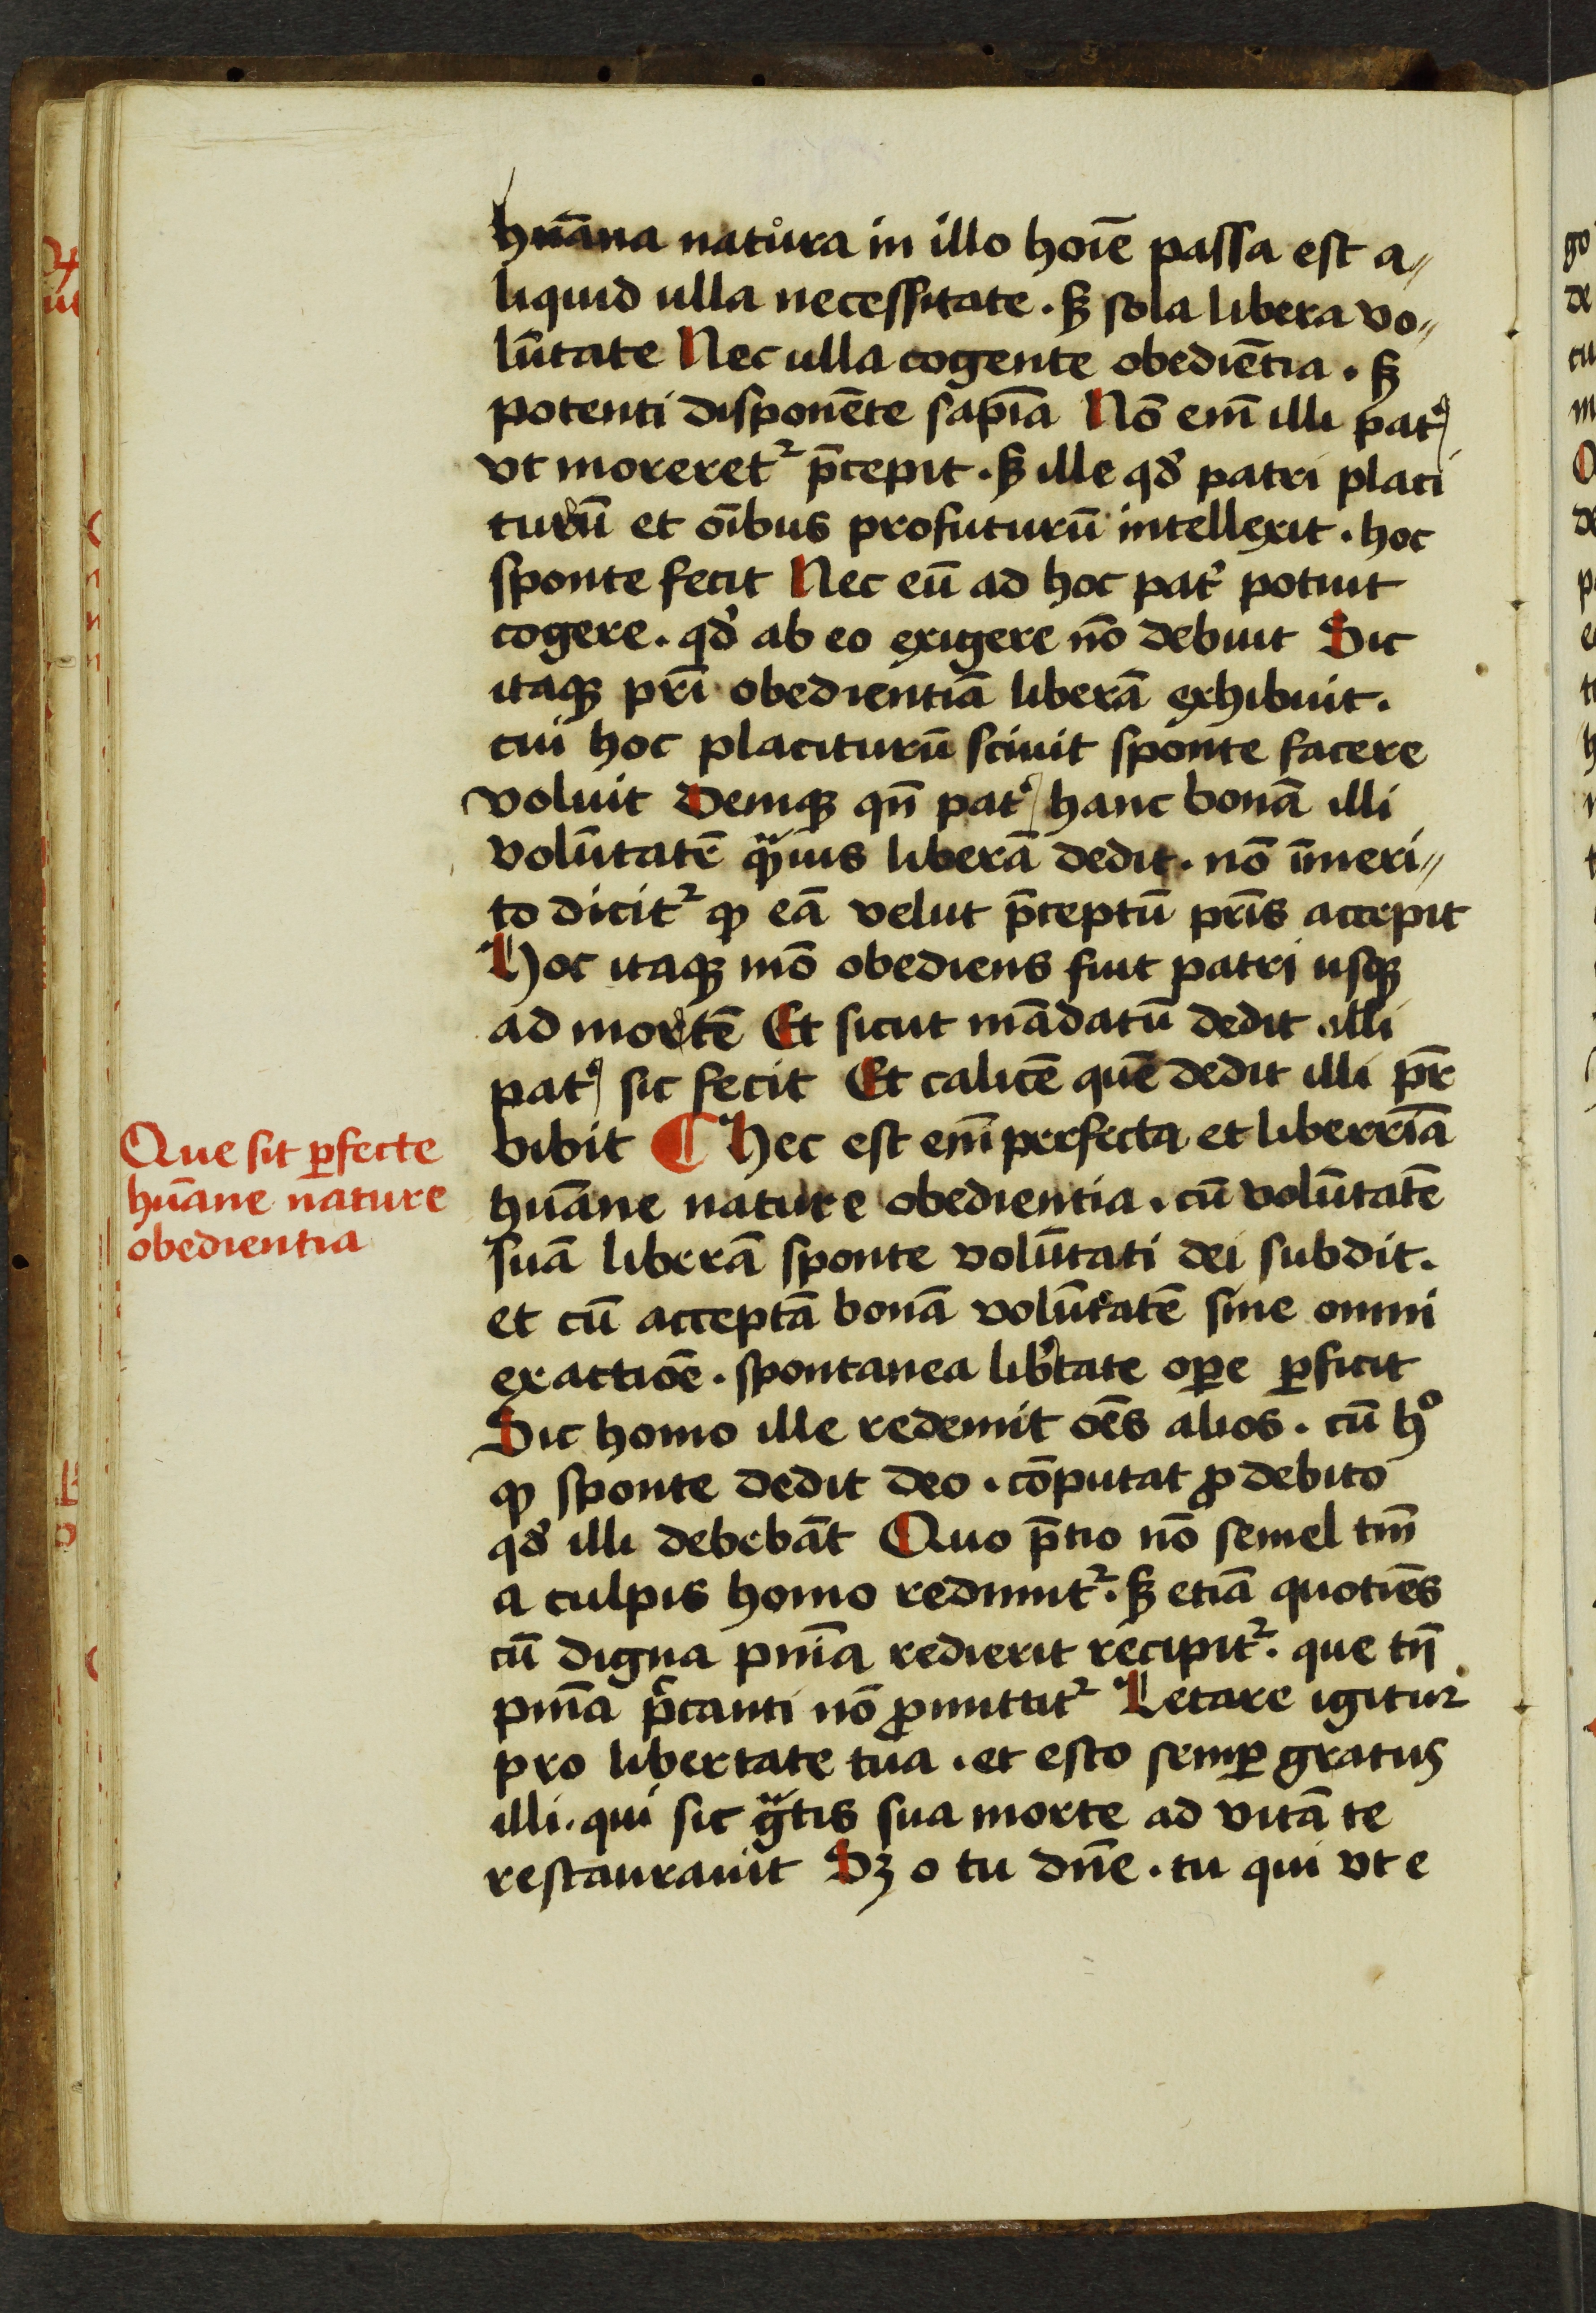 hūana natura in illo hoīe passa est a〃
liquid ulla necessitate . sꝫ sola libera vo〃
lūtate Nec ulla cogente obediētia . sꝫ
potenti disponēte sapīa Nō em̄ illi pat᷑
vt moreret᷑ p̄cepit . sꝫ ille qd᷑ patri placi
turū et oībus profuturū intellexit . hoc
sponte fecit Nec eū ad hoc pat᷑ potuit
cogere . qd᷑ ab eo exigere nō debuit Sic
itaqꝫ pr̄i obedientiā liberā exhibuit .
cui hoc placiturū sciuit sponte facere
voluit Deniqꝫ qn̄ pat᷑ hanc bonā illi
volūtatē qͣuis liberā dedit . nō īmeri〃
to dicit᷑ ꝙ eā velut p̄ceptū pr̄is accepit
Hoc itaqꝫ mō obediens fuit patri usqꝫ
ad mortē Et sicut mādatū dedit illi
pat᷑ sic fecit Et calicē quē dedit illi pr̄
bibit ¶ Hec est em̄ perfecta et liberrīa
hūane nature obedientia . cū volūtatē
suā liberā sponte volūtati dei subdit .
et cū acceptā bonā volūtatē sine omni
exactiōe . spontanea lib᷑tate oꝑe ꝑficit
Sic homo ille redemit oēs alios . cū hͦ
ꝙ sponte dedit deo . cōputat ꝓ debito
qd᷑ illi debebāt Quo p̄tio nō semel tm̄
a culpis homo redimit᷑ . sꝫ etiā quotiēs
cū digna pn̄ia redierit recipit᷑ . que tn̄
pn̄ia p̄canti nō ꝓmittit᷑ Letare igitur
pro libertate tua . et esto semꝑ gratus
illi . qui sic gͣtis sua morte ad vitā te
restaurauit Sꝫ o tu dn̄e . tu qui vt e
Que sit ꝑfecte
hūane nature
obedientia